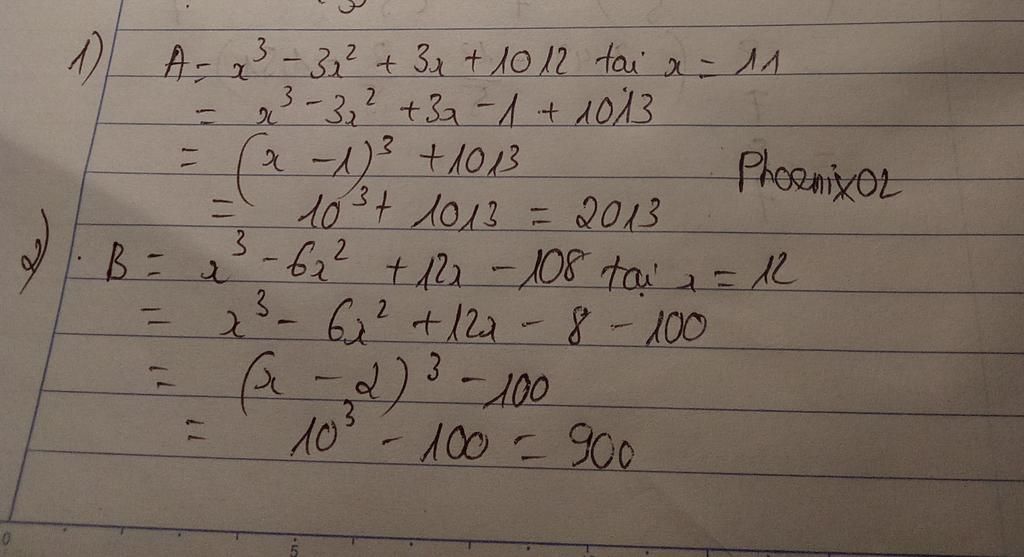 1) A = x³ - 3x² + 3x + 1012 tại x = 11
= x³ - 3x² + 3x - 1 + 1013
= (x - 1)³ + 1013
Phoenix02
= 10³ + 1013 = 2013
2) B = x³ - 6x² + 12x - 108 tại x = 12
= x³ - 6x² + 12x - 8 - 100
= (x - 2)³ - 100
= 10³ - 100 = 900
0 5